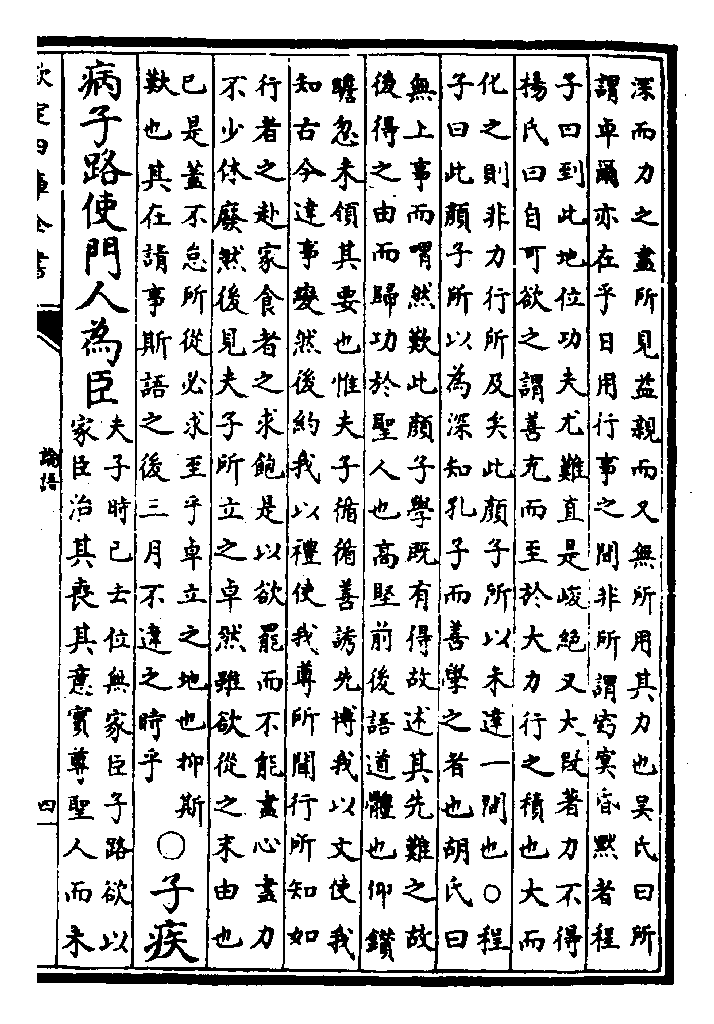 深而力之盡所見益親而又無所用其力也吳氏曰所
謂卓爾亦在乎日用行事之間非所謂窈冥昏默者程
子曰到此地位功夫尤難直是峻絶又大段著力不得
楊氏曰自可欲之謂善充而至於大力行之積也大而
化之則非力行所及矣此顔子所以未達一間也○程
子曰此顔子所以為深知孔子而善學之者也胡氏曰
無上事而喟然歎此顔子學既有得故述其先難之故
後得之由而歸功於聖人也高堅前後語道體也仰鑽
瞻忽未領其要也惟夫子循循善誘先博我以文使我
知古今達事變然後約我以禮使我尊所聞行所知如
行者之赴家食者之求飽是以欲罷而不能盡心盡力
不少休廢然後見夫子所立之卓然雖欲從之末由也
已是蓋不怠所從必求至乎卓立之地也抑斯
歎也其在請事斯語之後三月不違之時乎
○子疾
病子路使門人為臣
夫子時已去位無家臣子路欲以
家臣治其喪其意實尊聖人而未
欽定四庫全書
論語
四